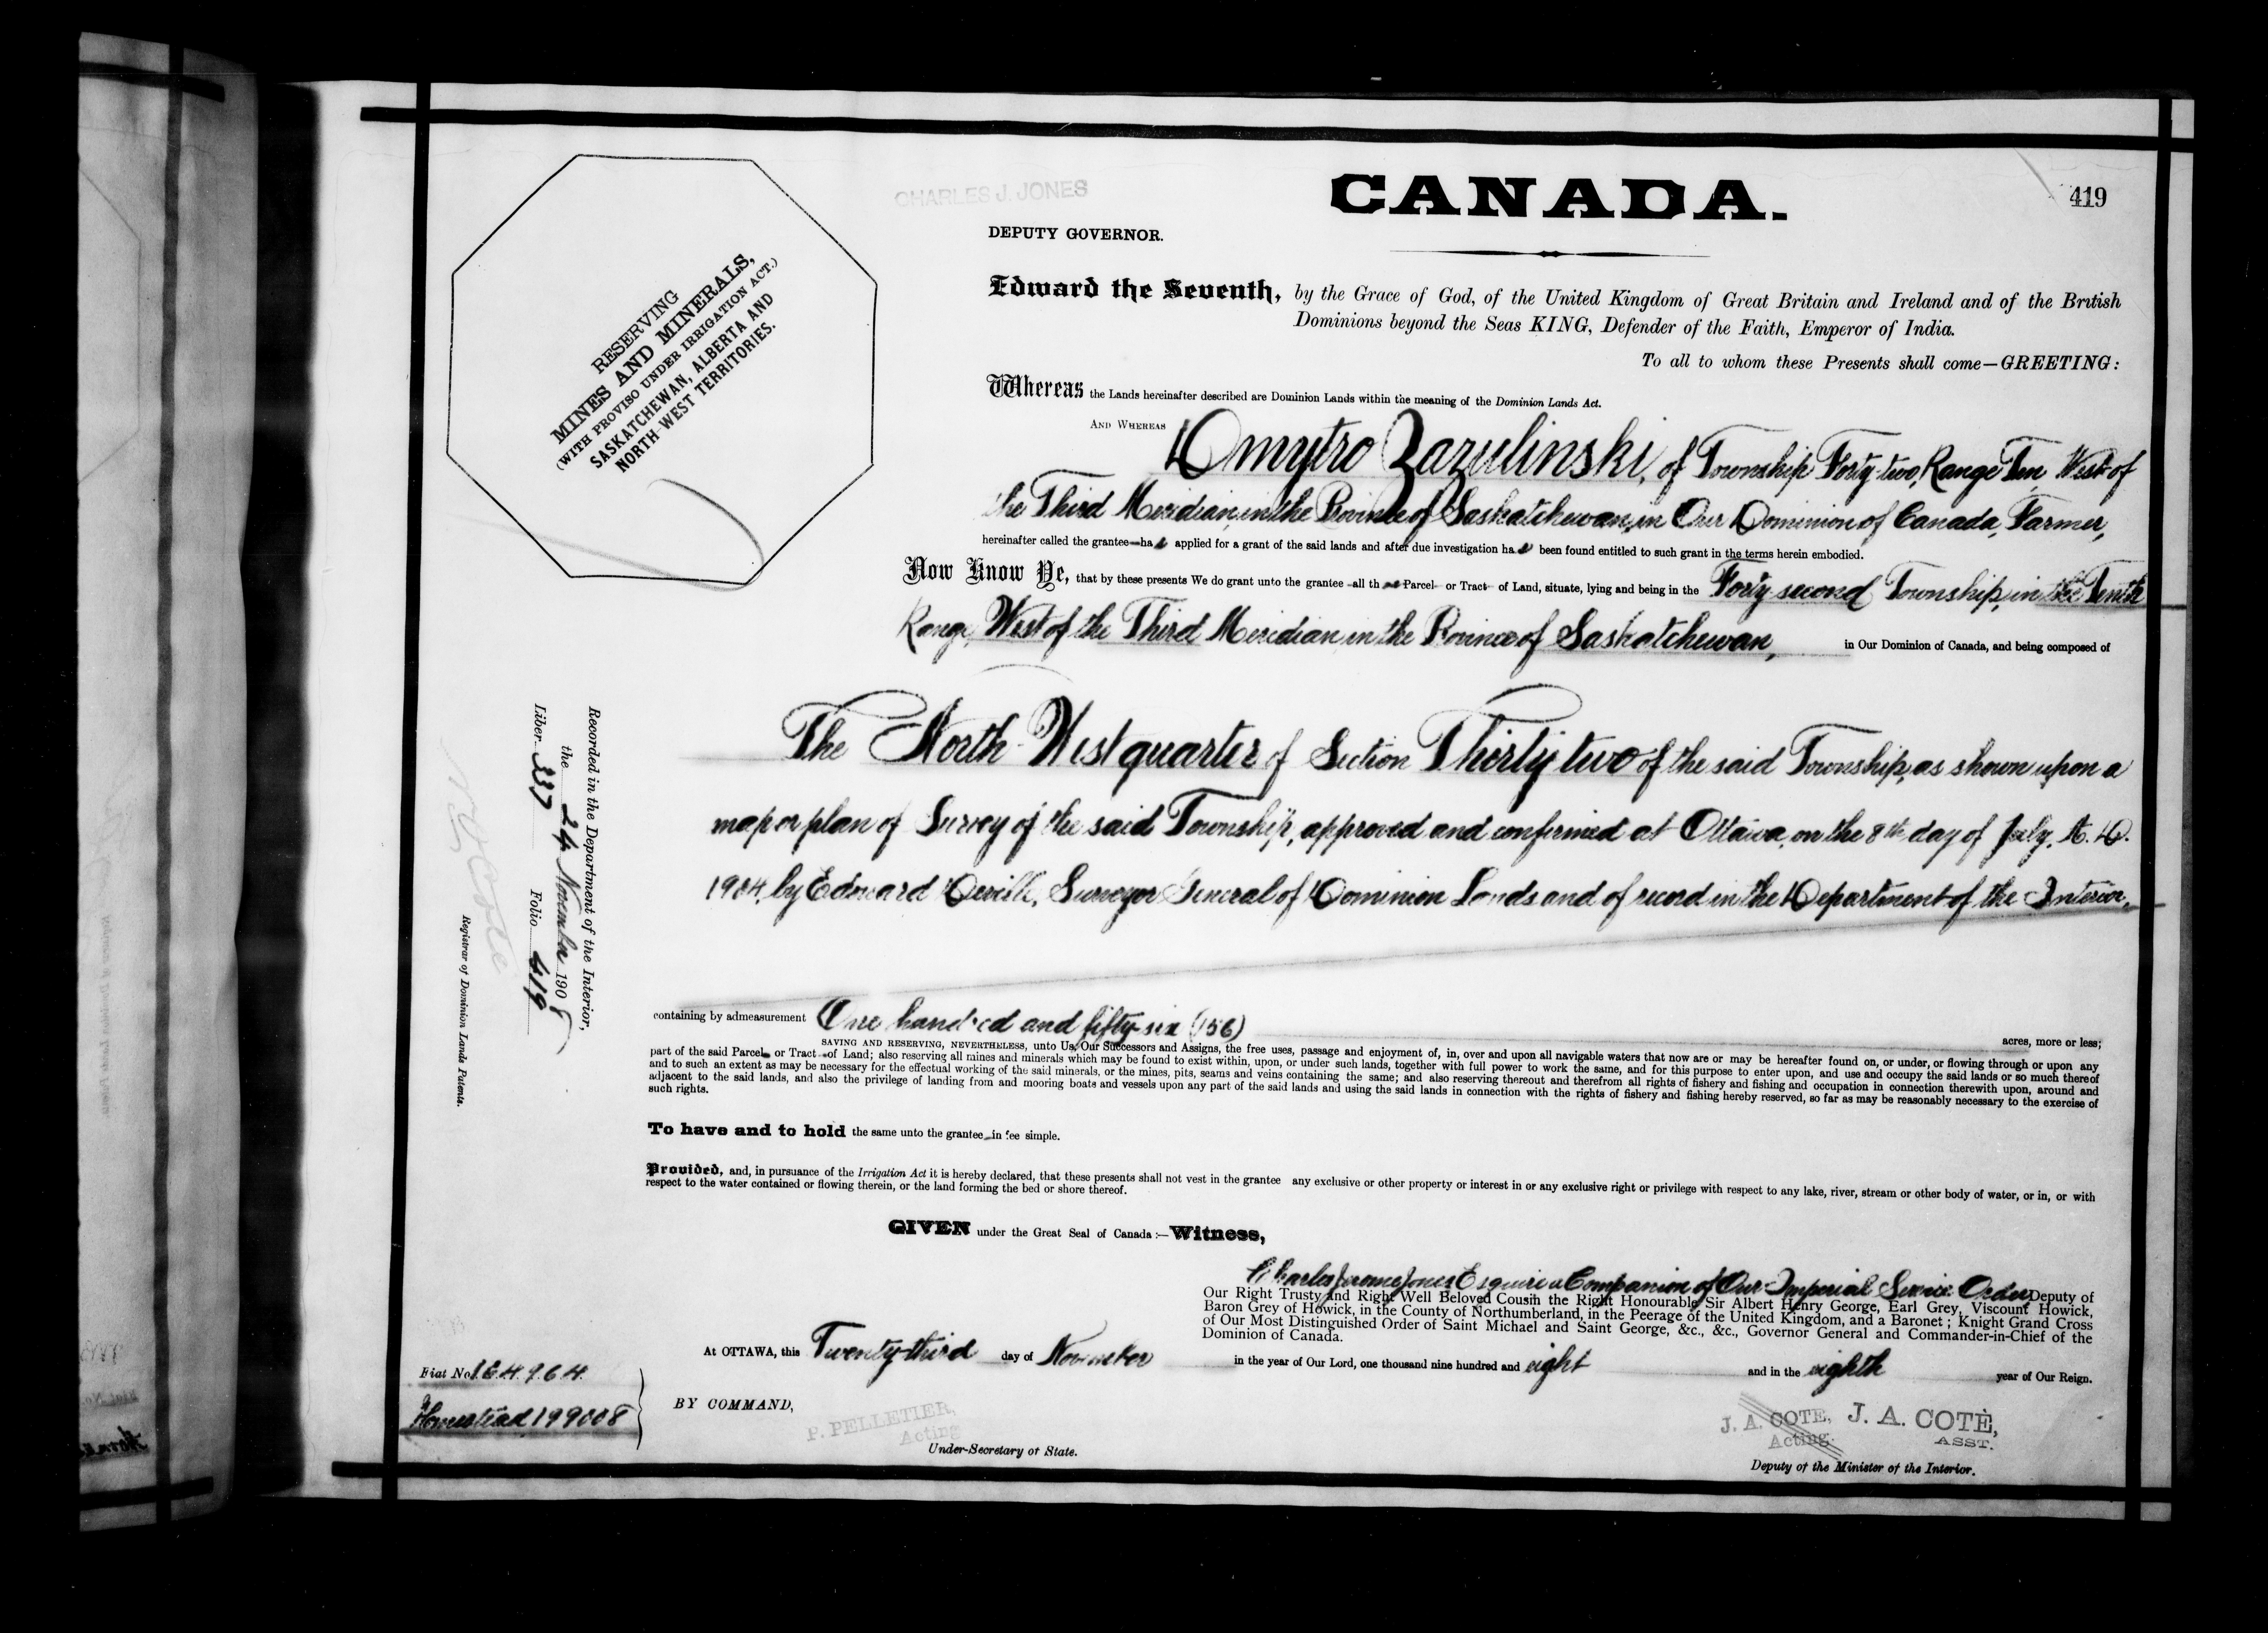 CHARLES J. JONES
CANADA.
419
DEPUTY GOVERNOR.
RESERVING
MINES AND MINERALS,
(WITH PROVISO UNDER IRRIGATION ACT.)
SASKATCHEWAN, ALBERTA AND
NORTH-WEST TERRITORIES.
Edward the Seventh, by the Grace of God, of the United Kingdom of Great Britain and Ireland and of the British
Dominions beyond the Seas KING, Defender of the Faith, Emperor of India.
To all to whom these Presents shall come—GREETING:
Whereas the Lands hereinafter described are Dominion Lands within the meaning of the Dominion Lands Act.
AND WHEREAS Dmytro Zazulinski, of Township Forty-two, Range Ten West of
the Third Meridian, in the Province of Saskatchewan, in Our Dominion of Canada, Farmer,
hereinafter called the grantee—ha s applied for a grant of the said lands and after due investigation ha s been found entitled to such grant in the terms herein embodied.
Now Know Ye, that by these presents We do grant unto the grantee—all th at Parcel or Tract of Land, situate, lying and being in the Forty second Township, in the Tenth
Range, West of the Third Meridian in the Province of Saskatchewan, in Our Dominion of Canada, and being composed of
The North-West quarter of Section Thirty two of the said Township, as shown upon a
map or plan of Survey of the said Township, approved and confirmed at Ottawa, on the 8th day of July, A.D.
1904, by Edouard Deville, Surveyor General of Dominion Lands and of record in the Department of the Interior,
containing by admeasurement One hundred and fifty-six (156) acres, more or less;
SAVING AND RESERVING, NEVERTHELESS, unto Us, Our Successors and Assigns, the free uses, passage and enjoyment of, in, over and upon all navigable waters that now are or may be hereafter found on, or under, or flowing through or upon any
part of the said Parcel or Tract of Land; also reserving all mines and minerals which may be found to exist within, upon, or under such lands, together with full power to work the same, and for this purpose to enter upon, and use and occupy the said lands or so much thereof
and to such an extent as may be necessary for the effectual working of the said minerals, or the mines, pits, seams and veins containing the same; and also reserving thereout and therefrom all rights of fishery and fishing and occupation in connection therewith upon, around and
adjacent to the said lands, and also the privilege of landing from and mooring boats and vessels upon any part of the said lands and using the said lands in connection with the rights of fishery and fishing hereby reserved, so far as may be reasonably necessary to the exercise of
such rights.
To have and to hold the same unto the grantee in fee simple.
Provided, and, in pursuance of the Irrigation Act it is hereby declared, that these presents shall not vest in the grantee any exclusive or other property or interest in or any exclusive right or privilege with respect to any lake, river, stream or other body of water, or in, or with
respect to the water contained or flowing therein, or the land forming the bed or shore thereof.
GIVEN under the Great Seal of Canada:—Witness,
Charles Jerome Jones Esquire a Companion of Our Imperial Service Order Deputy of
Our Right Trusty and Right Well Beloved Cousin the Right Honourable Sir Albert Henry George, Earl Grey, Viscount Howick,
Baron Grey of Howick, in the County of Northumberland, in the Peerage of the United Kingdom, and a Baronet; Knight Grand Cross
of Our Most Distinguished Order of Saint Michael and Saint George, &c., &c., Governor General and Commander-in-Chief of the
Dominion of Canada.
At OTTAWA, this Twenty-third day of November in the year of Our Lord, one thousand nine hundred and eight and in the eighth year of Our Reign.
BY COMMAND,
P. PELLETIER,
Acting
Under-Secretary of State.
J. A. COTE,
Acting
J. A. COTÉ,
ASST.
Deputy of the Minister of the Interior.
Fiat No. 164964.
Homestead, 199008
Recorded in the Department of the Interior,
the 24 November 1908
Liber 337 Folio 419
Registrar of Dominion Lands Patents.